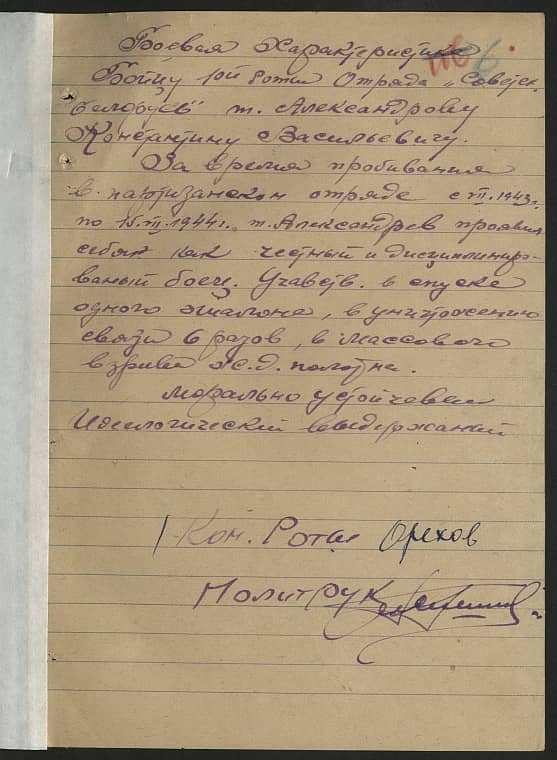 Боевая Характеристика
Бойцу 1ой Роты Отряда „Советск.
Белорусь" т. Александрову
Константину Васильевичу.
За время пробивания
в партизанском отряде с VII. 1943г.
по 15.VII.1944г. т. Александров проявил
себя как честный и дисциплиниро-
ваный боец. Учавств. в спуске
одного эшалона, в уничтожению
связи 6 разов, в массового
взрива ж.д. полотна.
Морально устойчевый
Идеологический выдержанний
Ком. Роты Орехов
Политрук